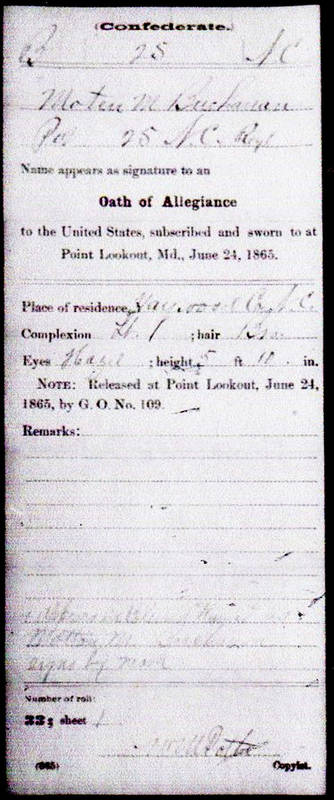 (Confederate.)
B 25 N C
Moten M Buchanan
Pvt 25 N. C. Regt
Name appears as signature to an
Oath of Allegiance
to the United States, subscribed and sworn to at
Point Lookout, Md., June 24, 1865.
Place of residence, Haywood Co, N. C.
Complexion Lt ; hair Bro
Eyes Hazel ; height, 5 ft 10 in.
NOTE: Released at Point Lookout, June 24,
1865, by G. O. No. 109.
Remarks:
M. Buchanan
signs by mark
Number of roll:
33; sheet 1
(665) Copyist.